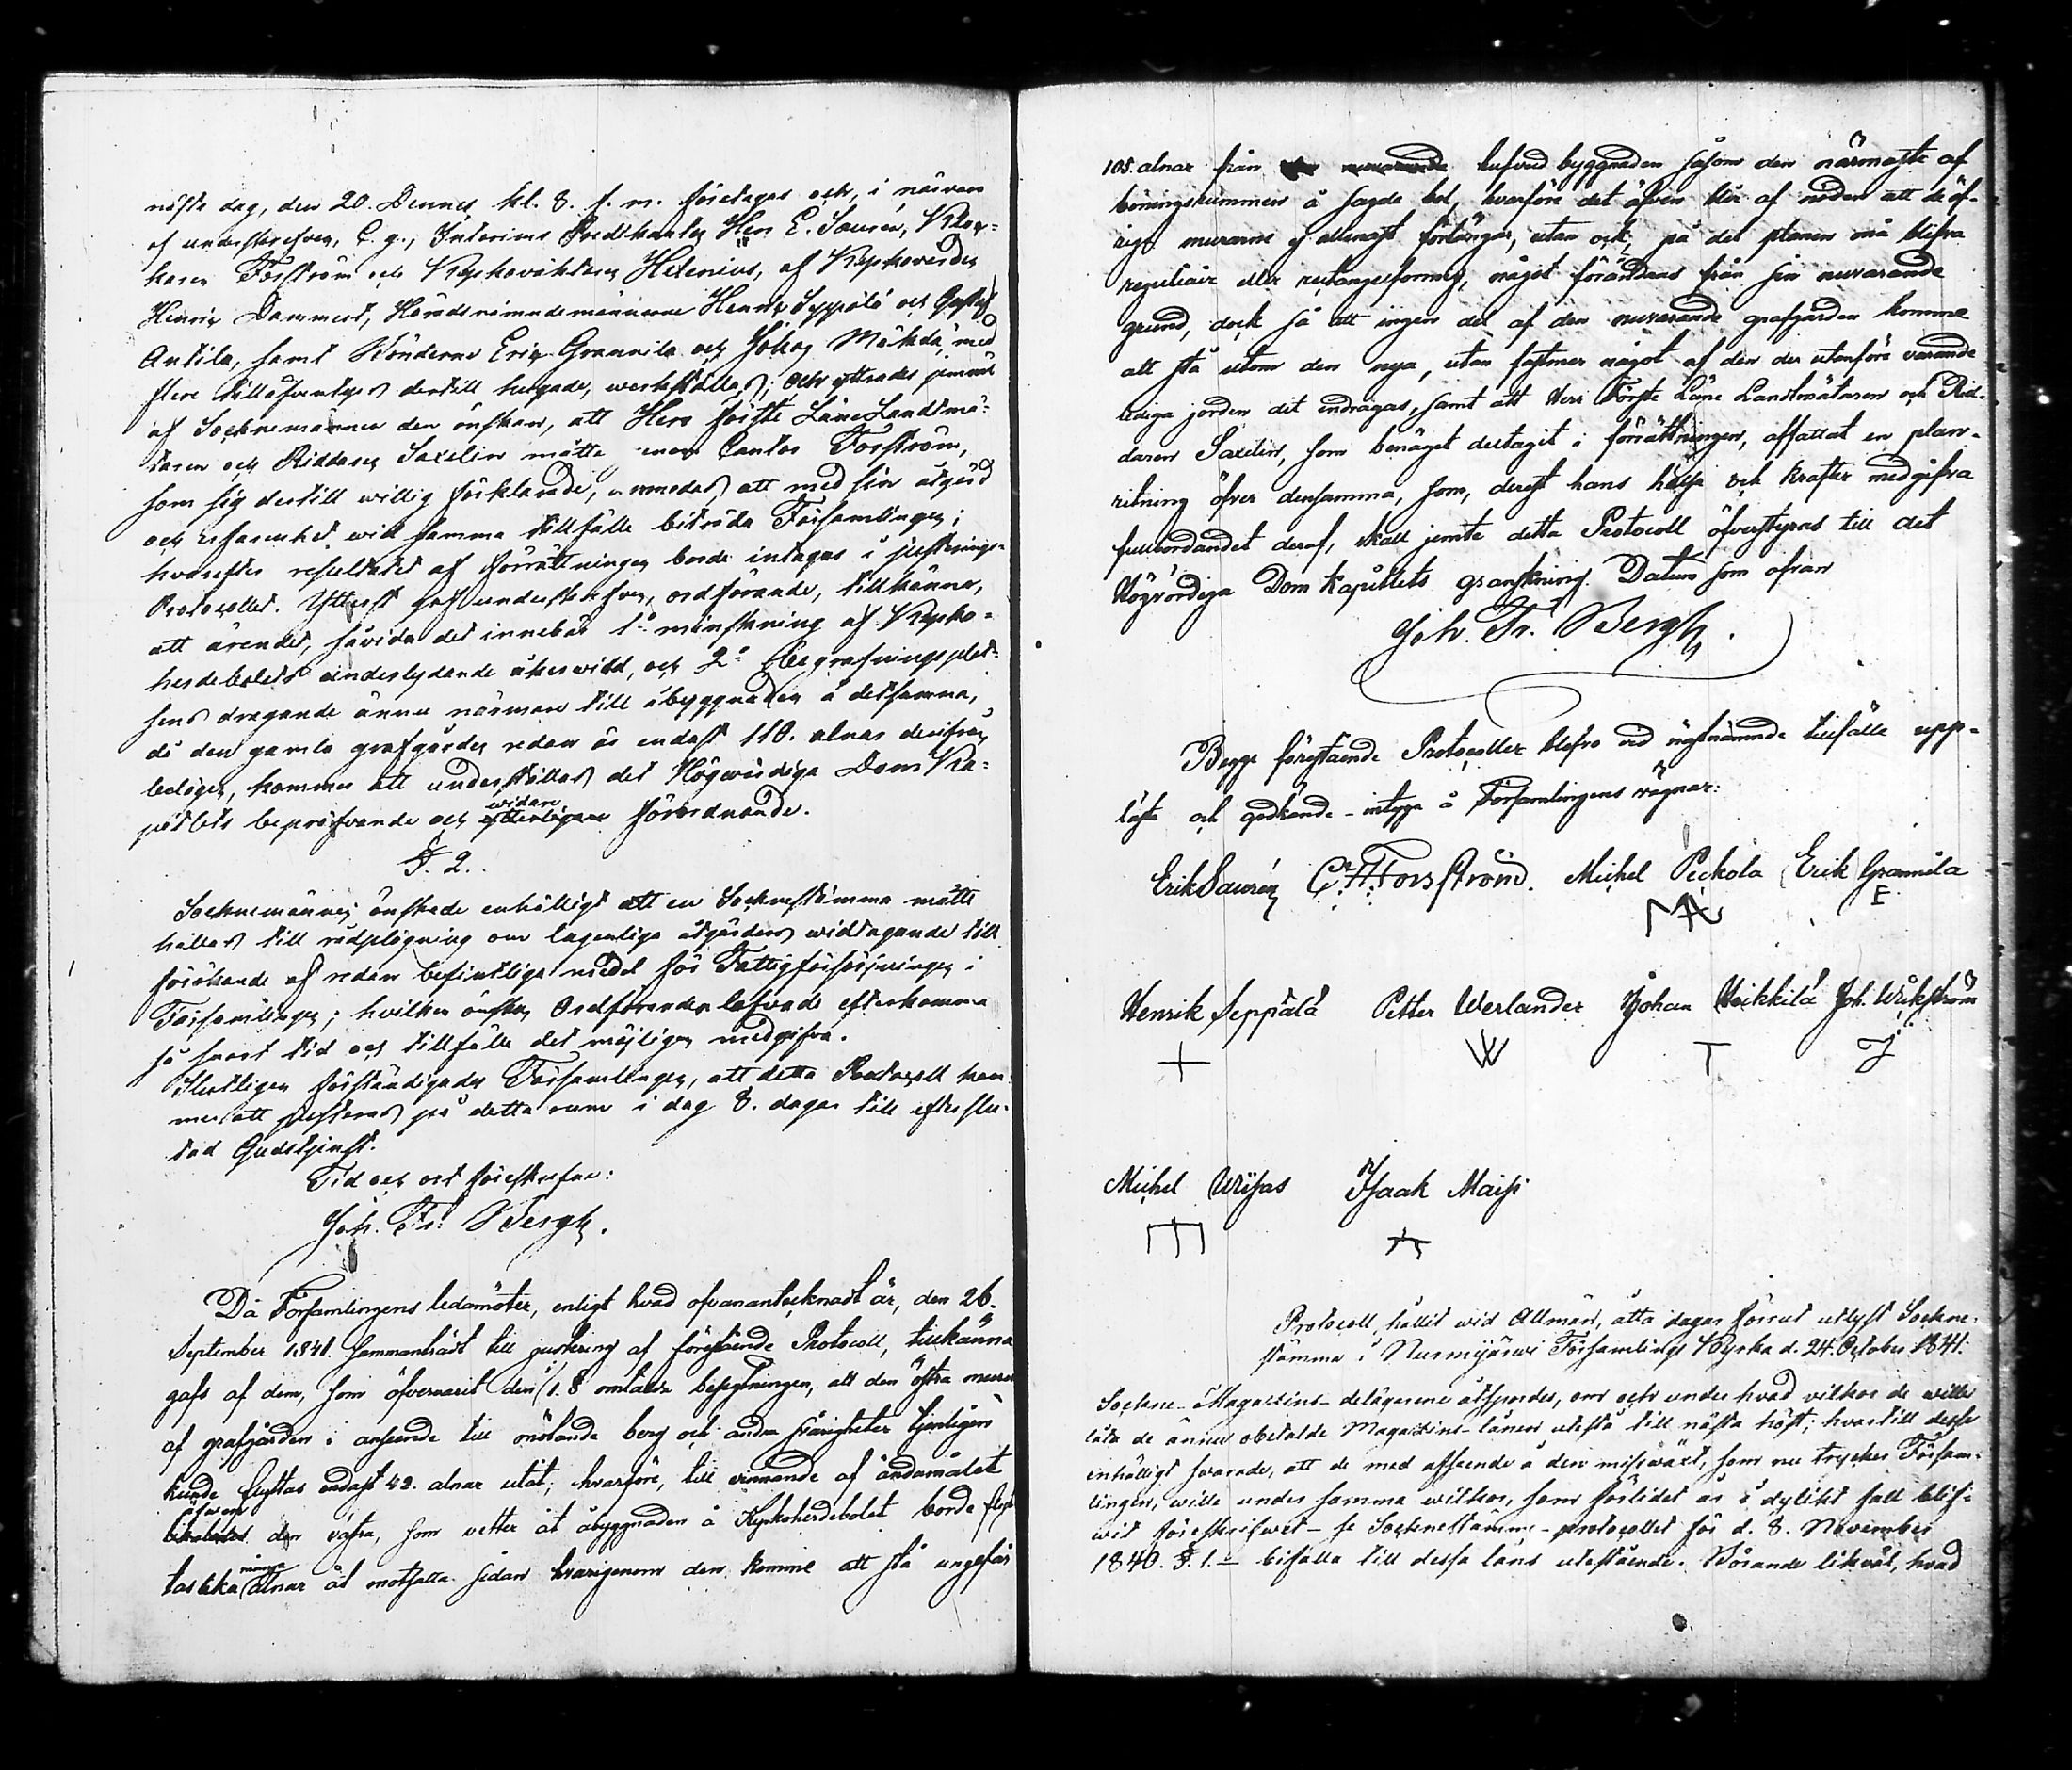 nästa dag, den 20. Dennes kl. 8. f. m. företagas och, i närvaro
af underskrefven, C. g., Interims Predikanten Herr E. Saurén, Klock-
karen Forström och Kyrkoväktaren Helenius, af Kyrkovärden
Henric Dammert, Häradsnämndemännerne Henric Seppälä och Gustaf
Antila, samt Bönderne Eric Grannila och Johan Mäkelä, med
flere tilläfventyrs dertill hugade, werkställas; och yttrades jemväl
af Socknemännen den önskan, att Herr förste Läne Landtmä-
taren och Riddaren Saxelin måtte genom Cantor Forström,
som sig dertill willig förklarade, anmodas att med sin åtgärd
och erfarenhet wid samma tillfälle biträda Församlingen;
hvarefter resultatet af förrättningen borde intagas i justerings-
Protocollet. Ytterst gaf underskrefven, ordförande, tillkänna,
att ärendet, såvida det innebär 1:o minskning af Kyrko-
herdebolets underlydande åkerwidd, och 2:o Begrafningsplat-
sens dragande ännu närmare till åbyggnaden å detsamma,
då den gamla grafgården redan är endast 110. alnar derifrån
belägen, kommer att underställas det Högwürdiga Dom Ka-
pitlets bepröfvande och widare förordnande.
§. 2.
Socknemännen önskade enhälligt att en Sockenstämma måtte
hållas till rådplägning om lagenliga åtgärders widtagande till
förökande af redan befintliga medel för Fattigförsörjningen i
Församlingen; hvilken önskan Ordföranden lofvade efterkomma
så snart tid och tillfälle det möjligen medgifva.
Slutligen förständigades Församlingen, att detta Protocoll kom-
mer att justeras på detta rum i dag 8. dagar till efter slu-
tad Gudstjenst.
Tid och ort föreskrefne:
Joh. Fr. Bergh.
Då Församlingens ledamöter, enligt hvad ofvanantecknadt är, den 26.
September 1841. sammanträdt till justering af förestående Protocoll, tillkänna
gafs af dem, som öfvervarit den i 1. § omtalda besigtningen, att den östra muren
af grafgården i anseende till mötande berg och andra svårigheter tjenligen
kunde flyttas endast 42. alnar utåt; hvarföre, till vinnande af ändamålet
äfwen den västra, som vetter åt åbyggnaden å Kyrkoherdebolet borde flyt-
tas lika många alnar åt motsatta sidan hvarigenom den komme att stå ungefär
105. alnar från hufvud byggnaden såsom den närmaste af
boningsrummen å sagde bol, hvarföre det äfven blir af nöden att de öf-
riga murarne ej allenast förlängas, utan ock, på det planen må blifva
reguliair eller rectangelformig, något förändras från sin nuvarande
grund, dock så att ingen del af den nuvarande grafgården komme
att stå utom den nya, utan fastmer något af den der utanföre varande
lediga jorden dit indragas, samt att Herr Förste Läne Landtmätaren och Rid-
daren Saxelin, som benäget deltagit i förrättningen, affattat en plan-
ritning öfver densamma, som, derest hans hälsa och krafter medgifva
fullbordandet deraf, skall jemte detta Protocoll öfverstyras till det
Högvördiga Dom Kapitlets granskning. Datum som ofvan
Joh. Fr. Bergh.
Begge förestående Protocoller blefvo vid nästnämnde tillfälle upp-
läste och godkände - intyga å Församlingens vägnar:
Erik Saurén C. H. Forsström. Michel Peckola Erik Grannila
E
Henrik Seppälä Petter Werlander Johan Heikkilä Joh. Wikström
W T J
Michel Uusas Isaak Maisi
Protocoll, hållit wid Allmän, åtta dagar förrut utlyst Sockne-
stämma i Nurmijärwi Församlings Kyrka d. 24. October 1841.
Sockne-Magasins-delägarene åtspordes, om och under hvad vilkor de wille
låta de ännu obetalde Magasins-lånen utestå till nästa höst; hvartill desse
enhälligt svarade, att de med afseende å den missväxt, som nu trycker Försam-
lingen, wille under samma wilkor, som förlidet år i dylikt fall blif-
wit föreskrifwet - se Sockenstämme-protocollet för d. 8. November
1840. §. 1. - bifalla till dessa låns utestående. Börande likväl, hvad